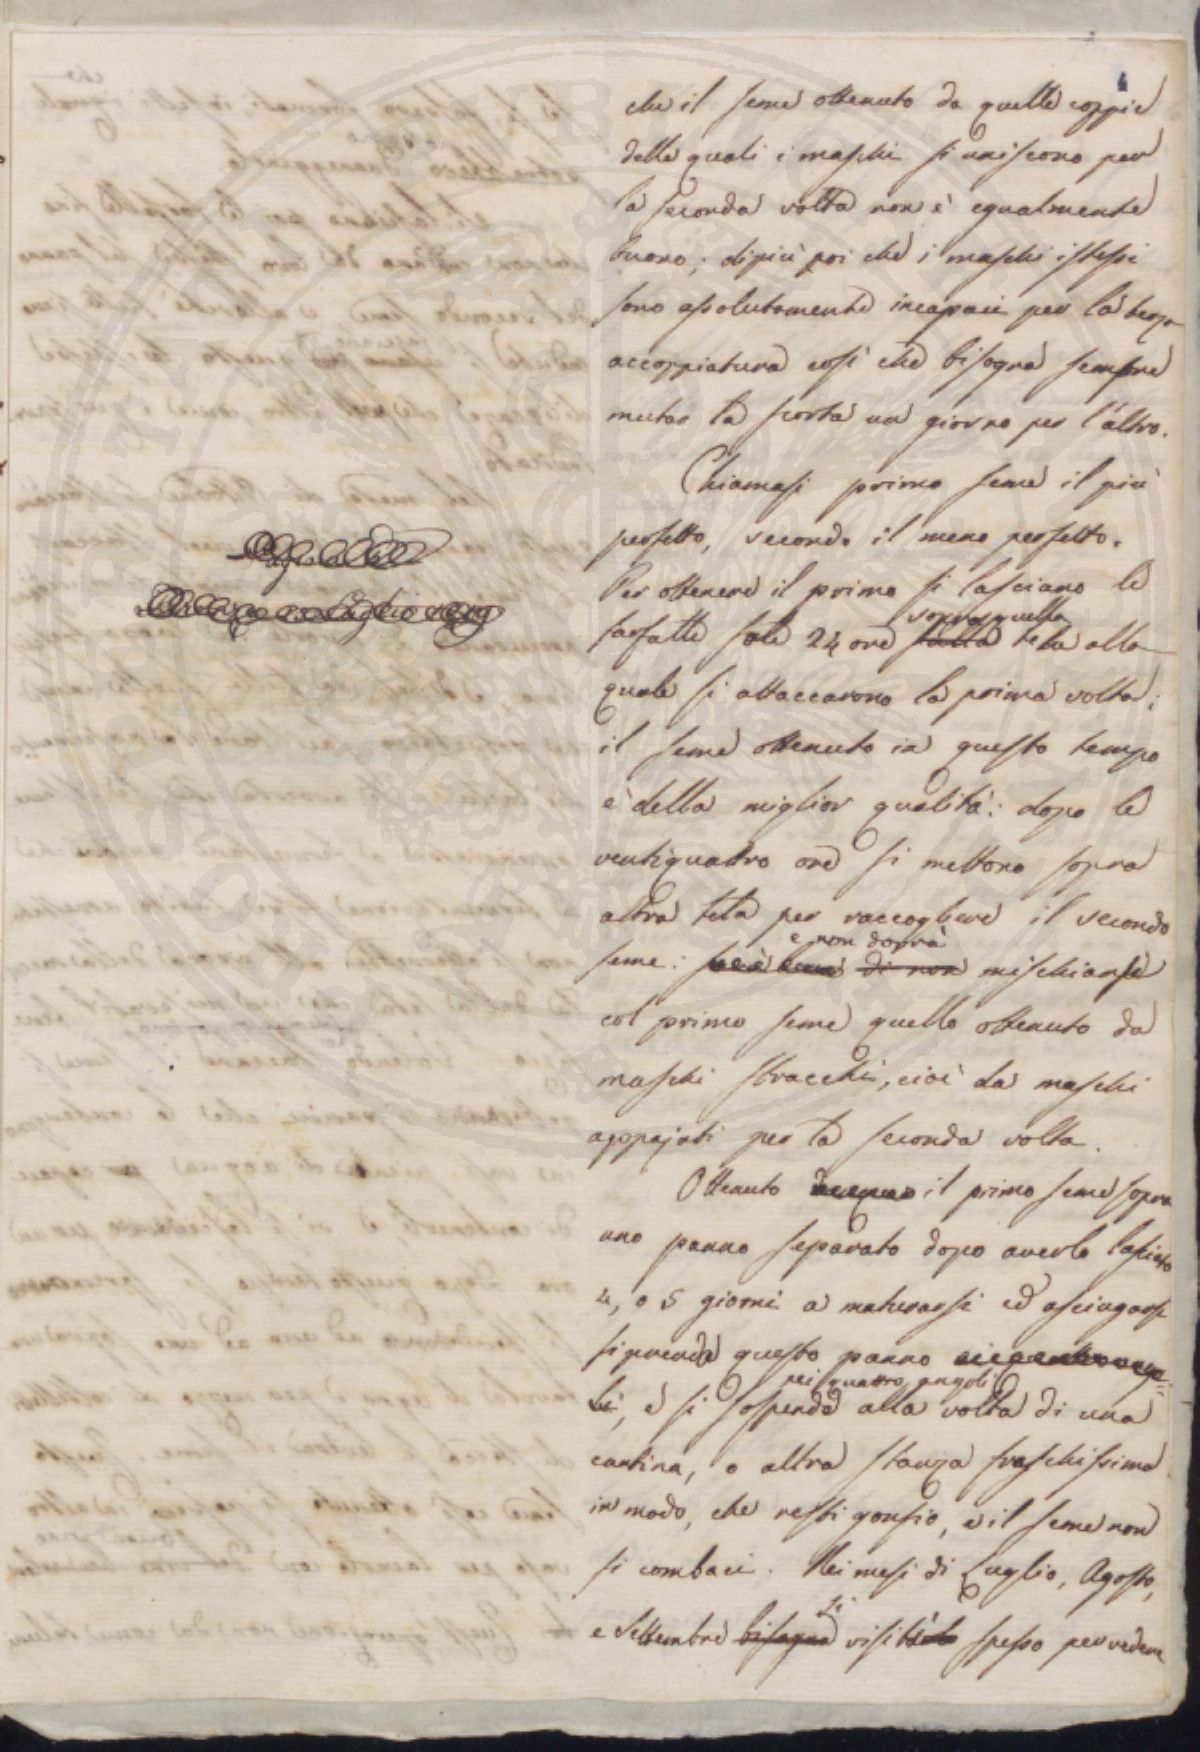 4
che il seme ottenuto da quelle coppie
delle quali i maschi si uniscono per
la seconda volta non è egualmente
buono; dipiù poi che i maschi istessi
sono assolutamente incapaci per la terza
accoppiatura così che bisogna sempre
mutar la sorta un giorno per l'altro.
Chiamasi primo seme il più
perfetto, secondo il meno perfetto.
Per ottenere il primo si lasciano le
sopra quella
farfalle sole 24 ore sulla tela alla
quale si attaccarono la prima volta;
il seme ottenuto in questo tempo
è della miglior qualità: dopo le
ventiquattro ore si mettono sopra
altra tela per raccogliere il secondo
e non dovrà
seme: di non mischiarsi
col primo seme quello ottenuto da
maschi stracchi, cioè da maschi
appajati per la seconda volta.
Ottenuto il primo seme sopra
uno panno separato dopo averlo lasciato
4, o 5 giorni a maturarsi ed asciugarsi
si prende questo panno
pei quattro angoli
, e si sospende alla volta di una
cantina, o altra stanza freschissima
in modo, che resti gonfio, e il seme non
si combaci. Nei mesi di Luglio, Agosto,
si
e Settembre bisogna visita spesso per vedere